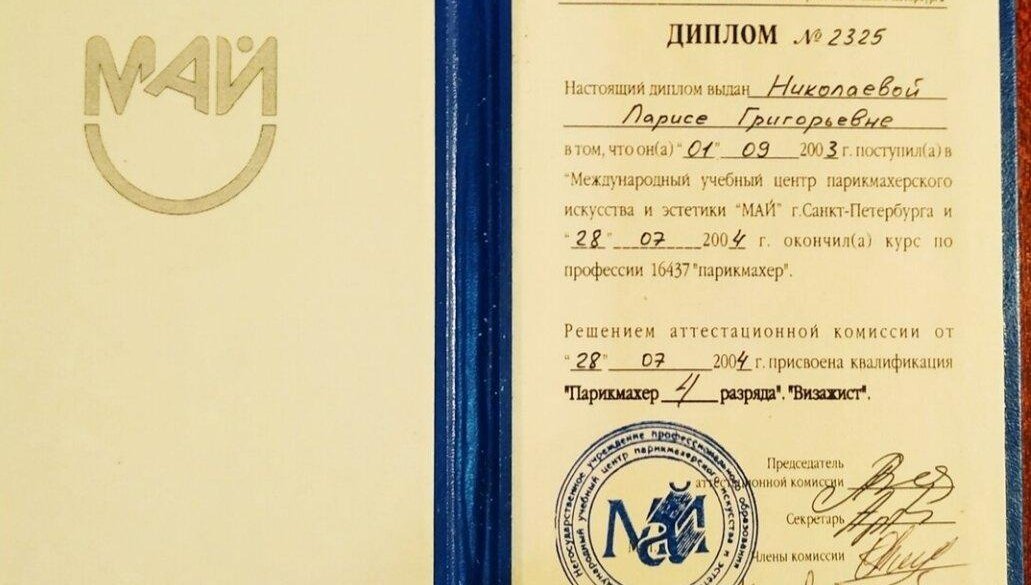 МАЙ
ДИПЛОМ № 2325
Настоящий диплом выдан Николаевой
Ларисе Григорьевне
в том, что он(а) "01" 09 2003 г. поступил(а) в
"Международный учебный центр парикмахерского
искусства и эстетики "МАЙ" г.Санкт-Петербурга и
"28" 07 2004 г. окончил(а) курс по
профессии 16437 "парикмахер".
Решением аттестационной комиссии от
"28" 07 2004 г. присвоена квалификация
"Парикмахер 4 разряда". "Визажист".
Председатель
аттестационной комиссии
Секретарь
Члены комиссии
Негосударственное учреждение профессионального образования
Международный учебный центр парикмахерского искусства и эстетики
МАЙ